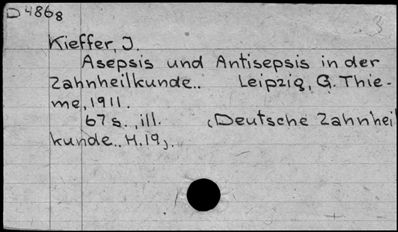 D 4868
3
Kieffer, J.
Asepsis und Antisepsis in der
Zahnheilkunde.. Leipzig, G. Thie-
me, 1911.
67 s., ill. (Deutsche Zahnhei
kunde.. H.19).